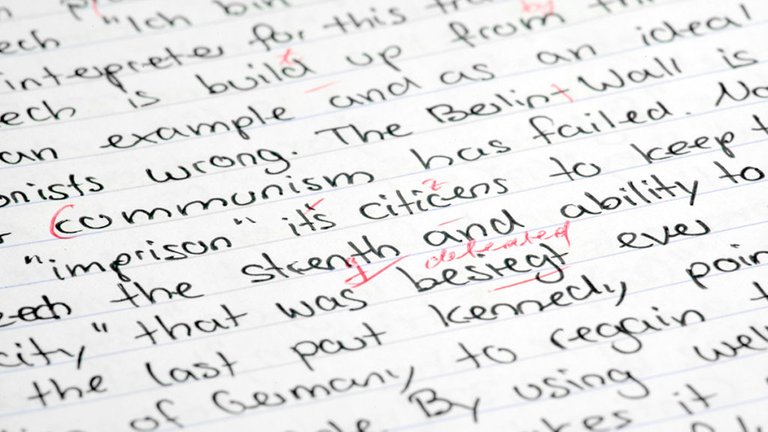 ech "Ich bin
interpreter for this tra by
ech is build up from th
an example and as an ideal
onists wrong. The Berlin Wall is
communism has failed. No
"imprison" it's citicens to keep t
eech the strenth and ability to
defeated
city" that was besiegt ever
the last part Kennedy poin
of Germany to regain t
By using wel
it